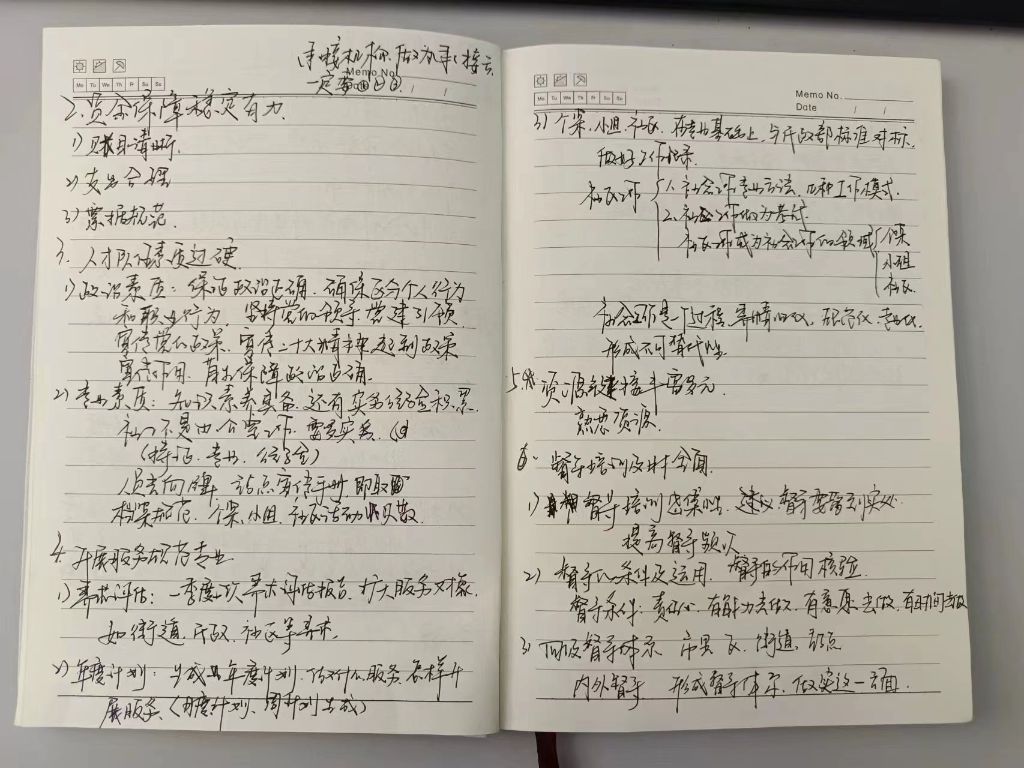 Memo No.
Mo Tu We Th Fr Sa Su
2.资金保障稳定有力.
1)账目清晰.
2)支出合理
3)票据规范.
3.人才队伍素质过硬.
1)政治素质:保证政治正确.确保区分个人行为
和职业行为.坚持党的领导党建引领
宣传党的政策.宣传二十大精神起到政策
宣传作用.有力保障政治正确.
2)专业素质:知识素养具备.还有实务经验积累.
社工不是办公室工作.需要实务.
(持证、专业、)
人员去向牌
档案规范.个案.小组.社区活动
4.开展服务规范专业
1)需求评估:一季度一次需求评估报告.扩大服务对象.
如街道.民政.社区等需求.
2)年度计划:生成年度计划.做什么服务.怎样开
展服务.(月度计划、周计划生成)
Memo No.
Date / /
Mo Tu We Th Fr Sa Su
3)个案.小组.社区.在专业基础上.与民政部标准对标.
做好工作记录.
社区工作 1.社会工作专业方法.四种工作模式.
2.社区工作做为基础
社区工作成为社会工作的领域 个案
小组
社区
社会工作是一个过程.
形成不可替代性.
5.资源链接丰富多元
熟悉资源.
6.督导培训及时全面.
1)督导培训.建议督导要落到实处
提高督导频次
2)督导的条件及运用.督导的作用核验.
督导条件:责任心.有能力去做.有意愿去做.有时间去做
3)四级督导体系 市.县区.街道.站点
内外督导 形成督导体系.做实这一方面.